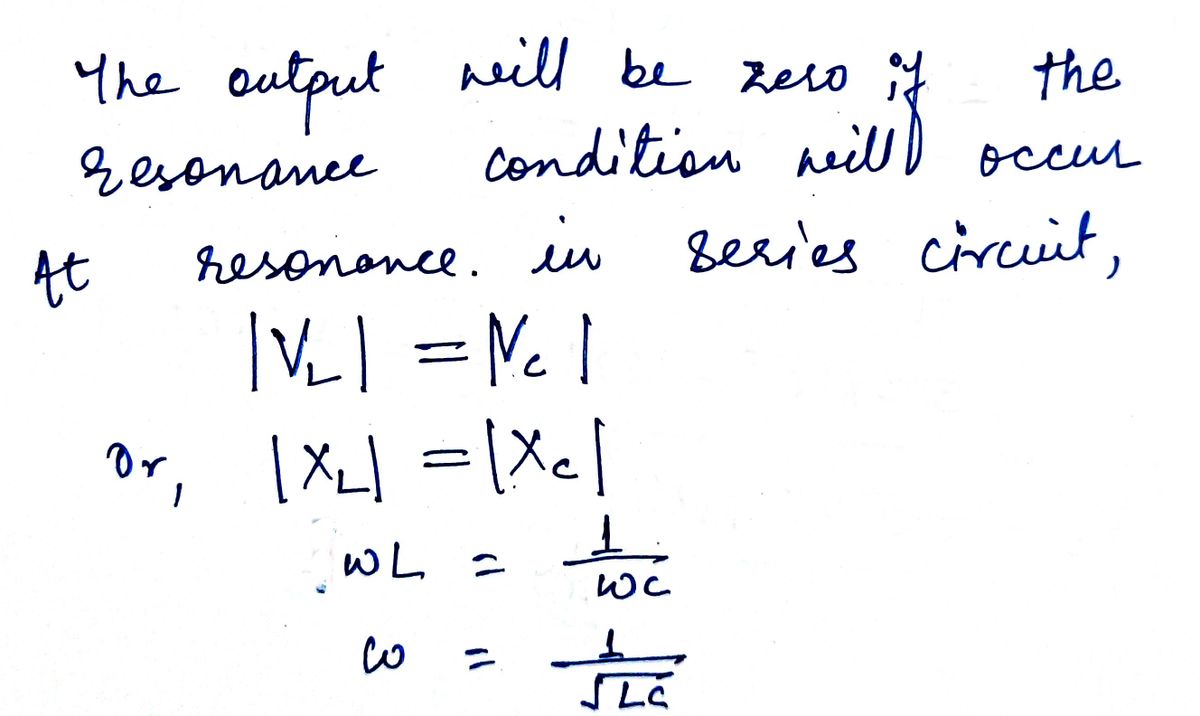 The output will be zero if the
resonance condition will occur
At resonance. in series circuit,
|V_L| = |V_C|
Or, |X_L| = |X_C|
ωL = 1/ωC
ω = 1/√LC